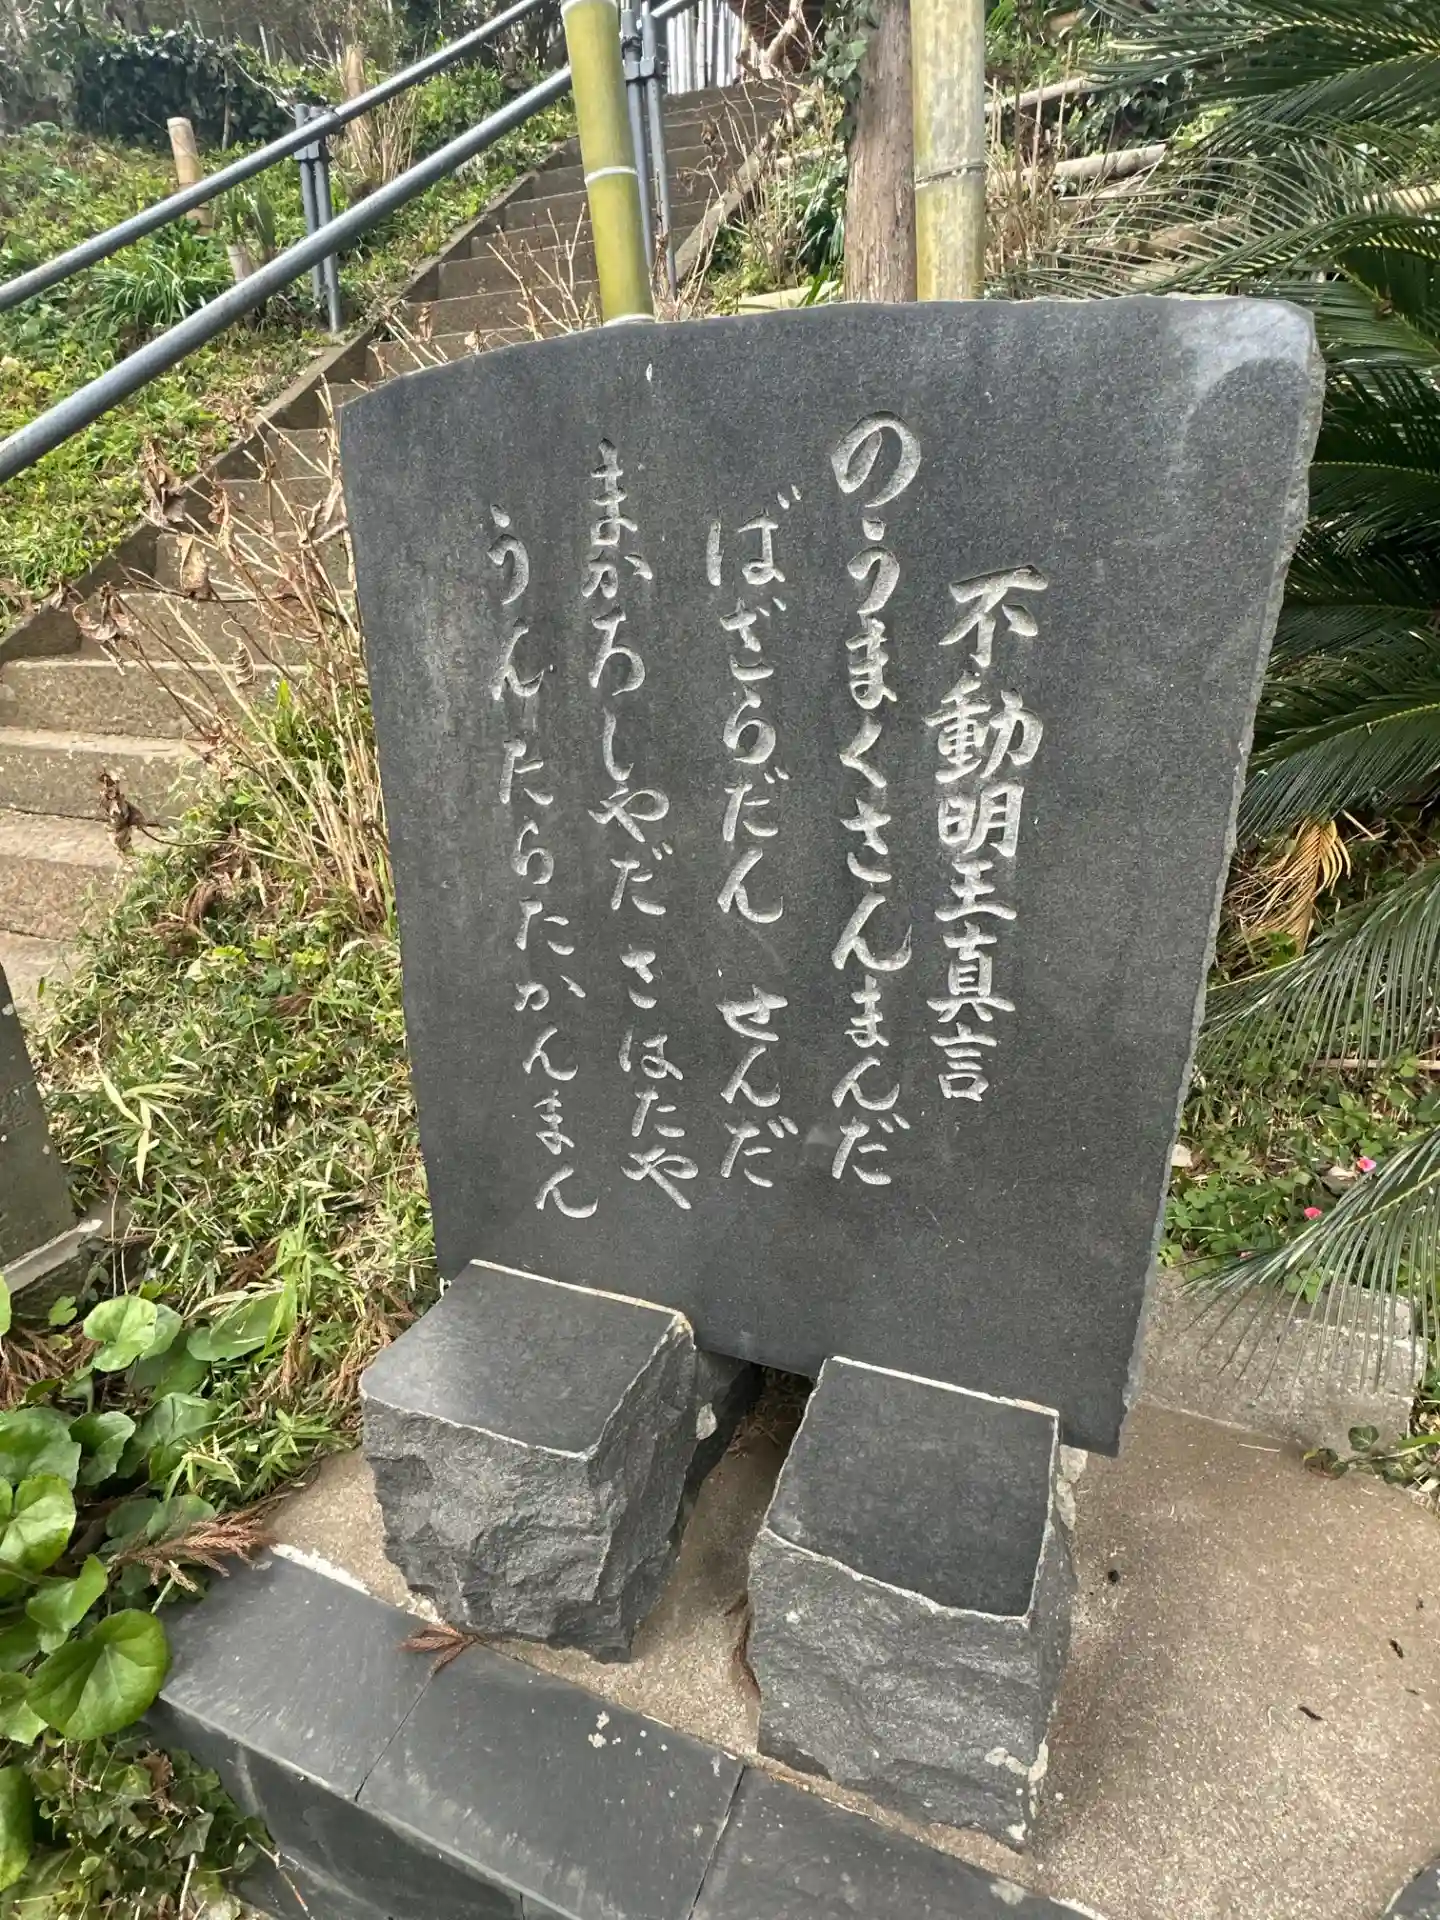 不動明王真言
のうまくさんまんだ
ばざらだん せんだ
まかろしやだ さはたや
うんたらたかんまん